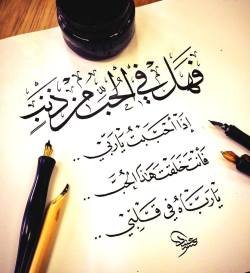 فهل في الحب من ذنب
إذا أحببت يا ربي ..
فأنت خلقت هذا الحب ..
يا رباه في قلبي ..